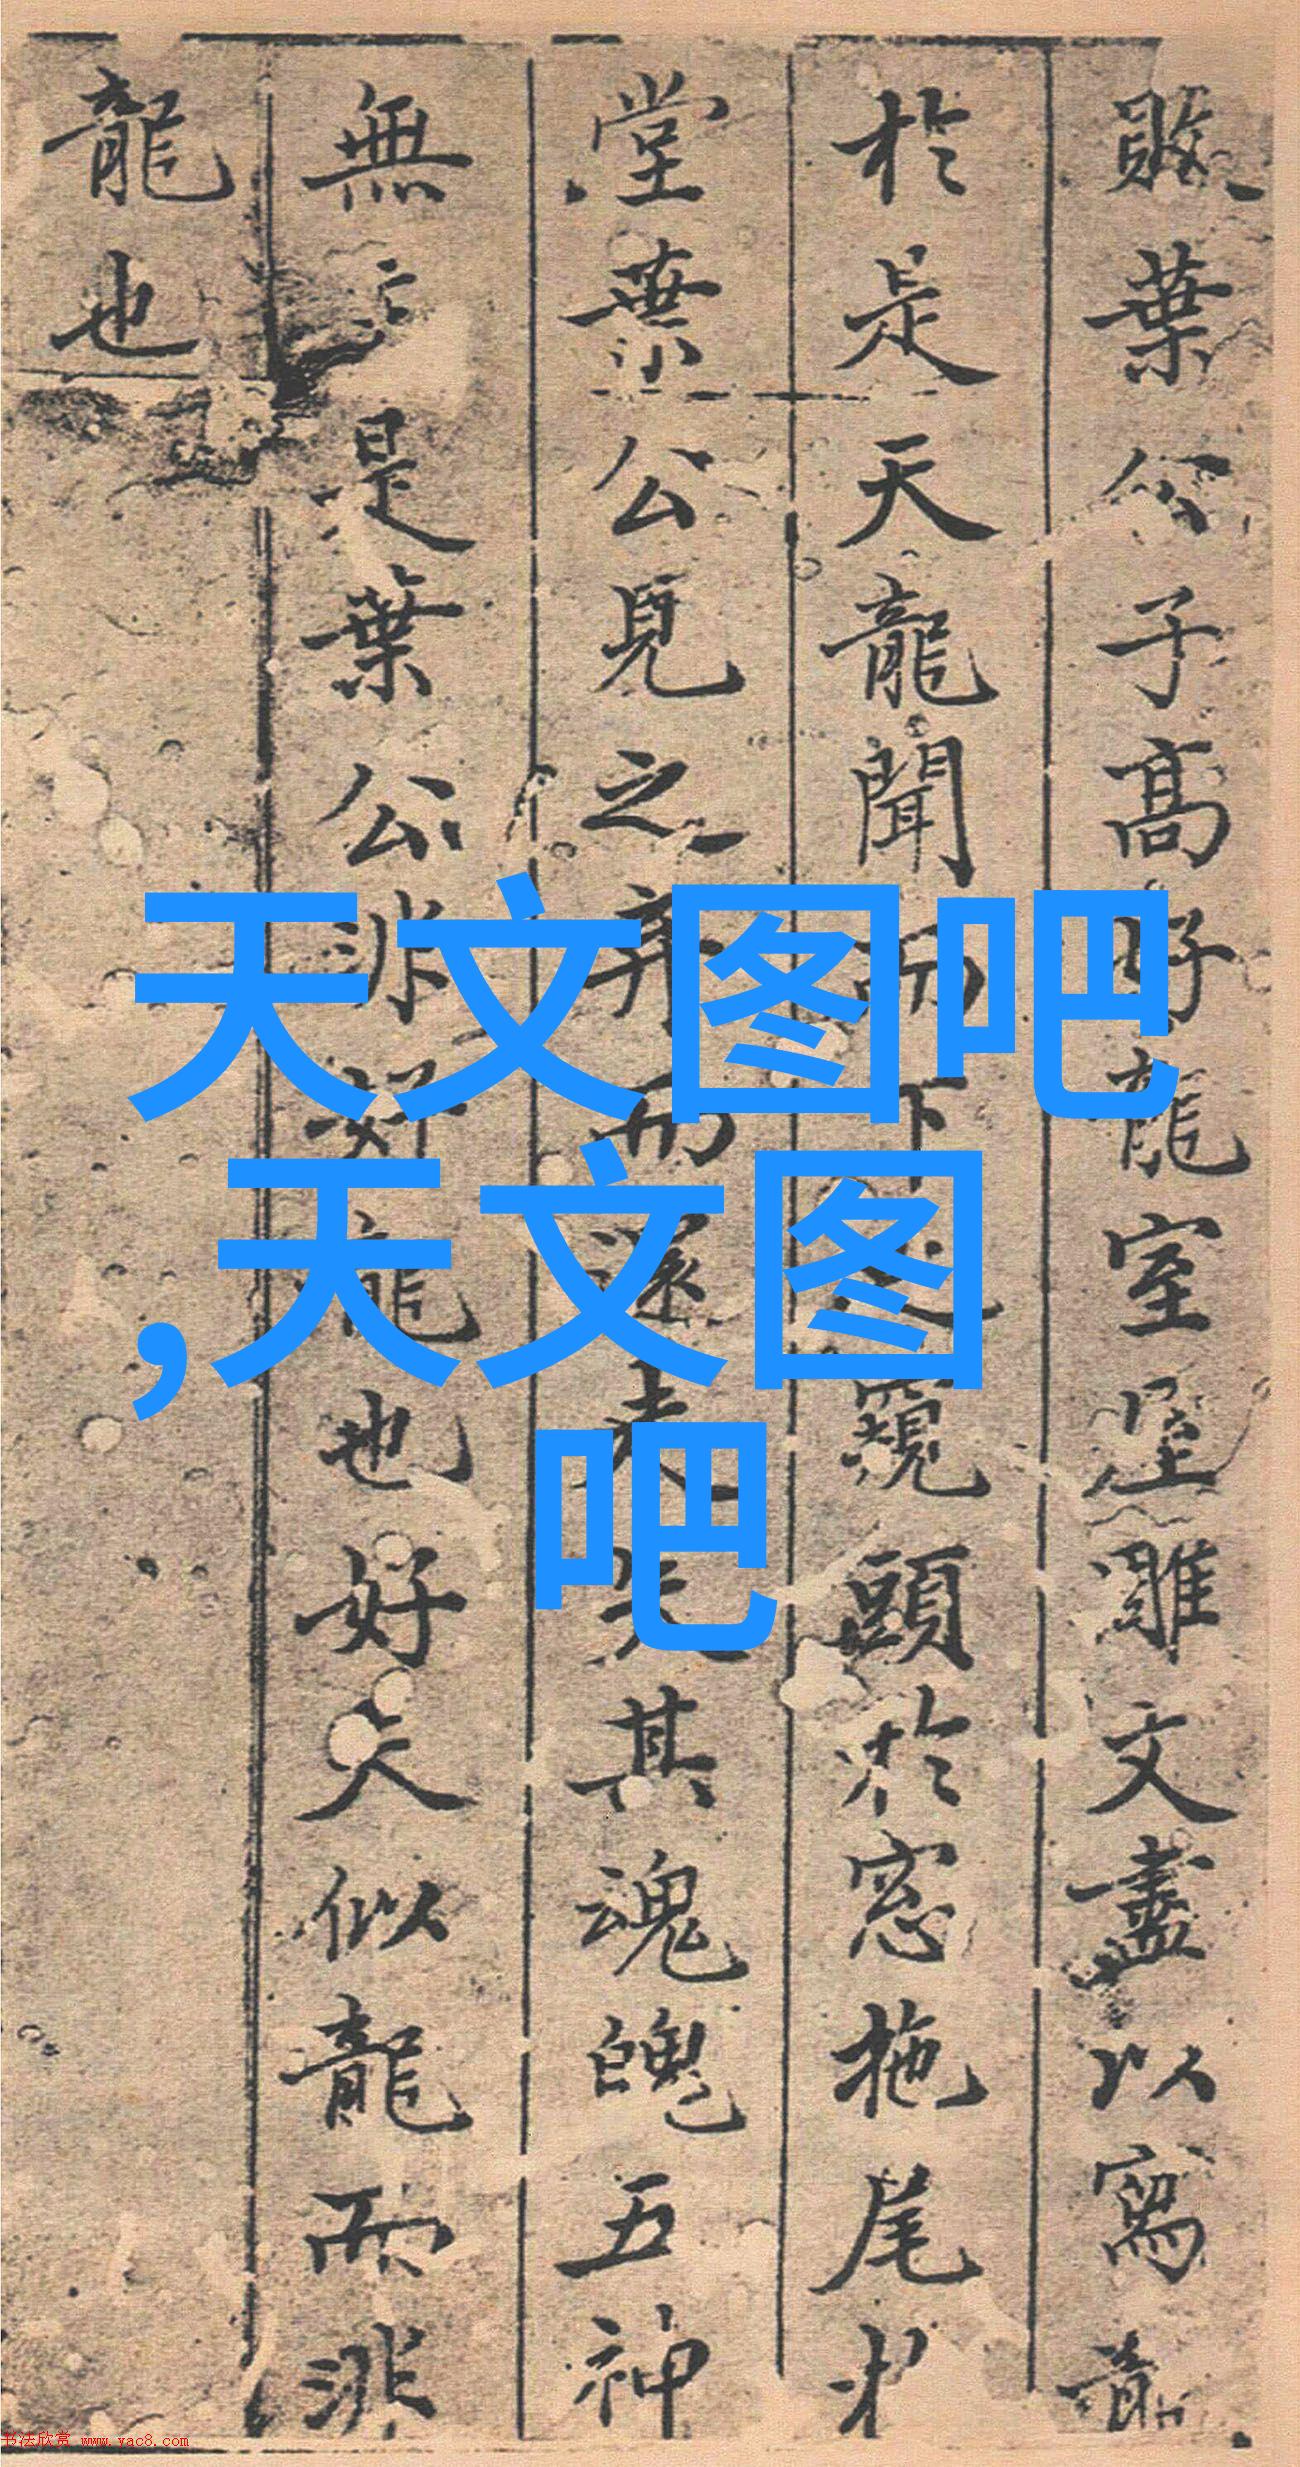 敗葉公子高好龍室屋雕文盡以寫龍
於是天龍聞而下之窺頭於窓拖尾於
堂葉公見之弃而還走失其魂魄五神
無主是葉公非好龍也好夫似龍而非
龍也
天文图吧
,天文图
吧
书法欣赏 www.yac8.com